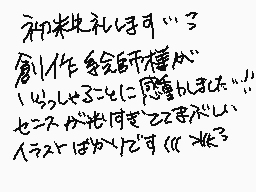 初米失礼します…︎
創作絵師様が
いらっしゃることに感動しました…!!
センスが光りすぎててまぶしい
イラストばかりです(((